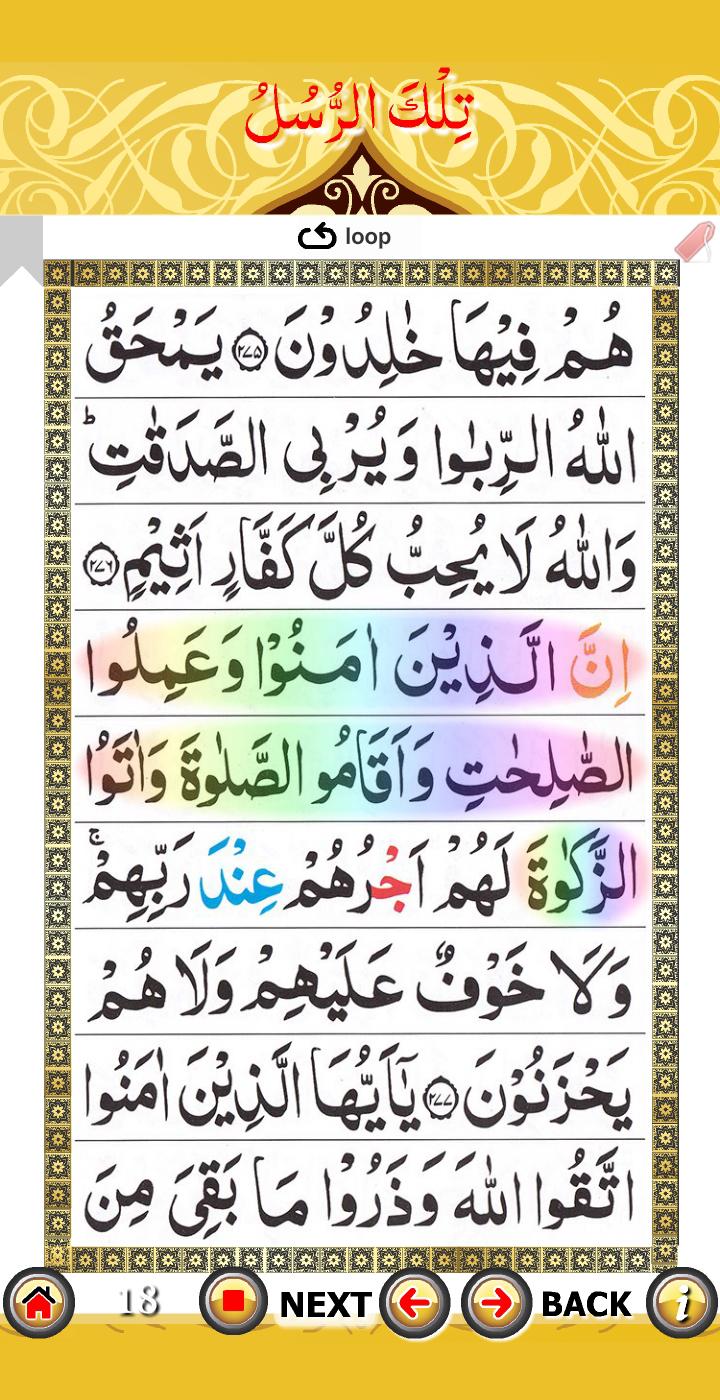 تِلْكَ الرُّسُلُ
loop
هُمْ فِيْهَا خٰلِدُوْنَ ۝۲۷۵ يَمْحَقُ
اللّٰهُ الرِّبٰوا وَيُرْبِى الصَّدَقٰتِ ؕ
وَاللّٰهُ لَا يُحِبُّ كُلَّ كَفَّارٍ اَثِيْمٍ ۝۲۷۶
اِنَّ الَّذِيْنَ اٰمَنُوْا وَعَمِلُوا
الصّٰلِحٰتِ وَاَقَامُوا الصَّلٰوةَ وَاٰتَوُا
الزَّكٰوةَ لَهُمْ اَجْرُهُمْ عِنْدَ رَبِّهِمْ ۚ
وَلَا خَوْفٌ عَلَيْهِمْ وَلَا هُمْ
يَحْزَنُوْنَ ۝۲۷۷ يٰۤاَيُّهَا الَّذِيْنَ اٰمَنُوا
اتَّقُوا اللّٰهَ وَذَرُوْا مَا بَقِىَ مِنَ
18 NEXT BACK i